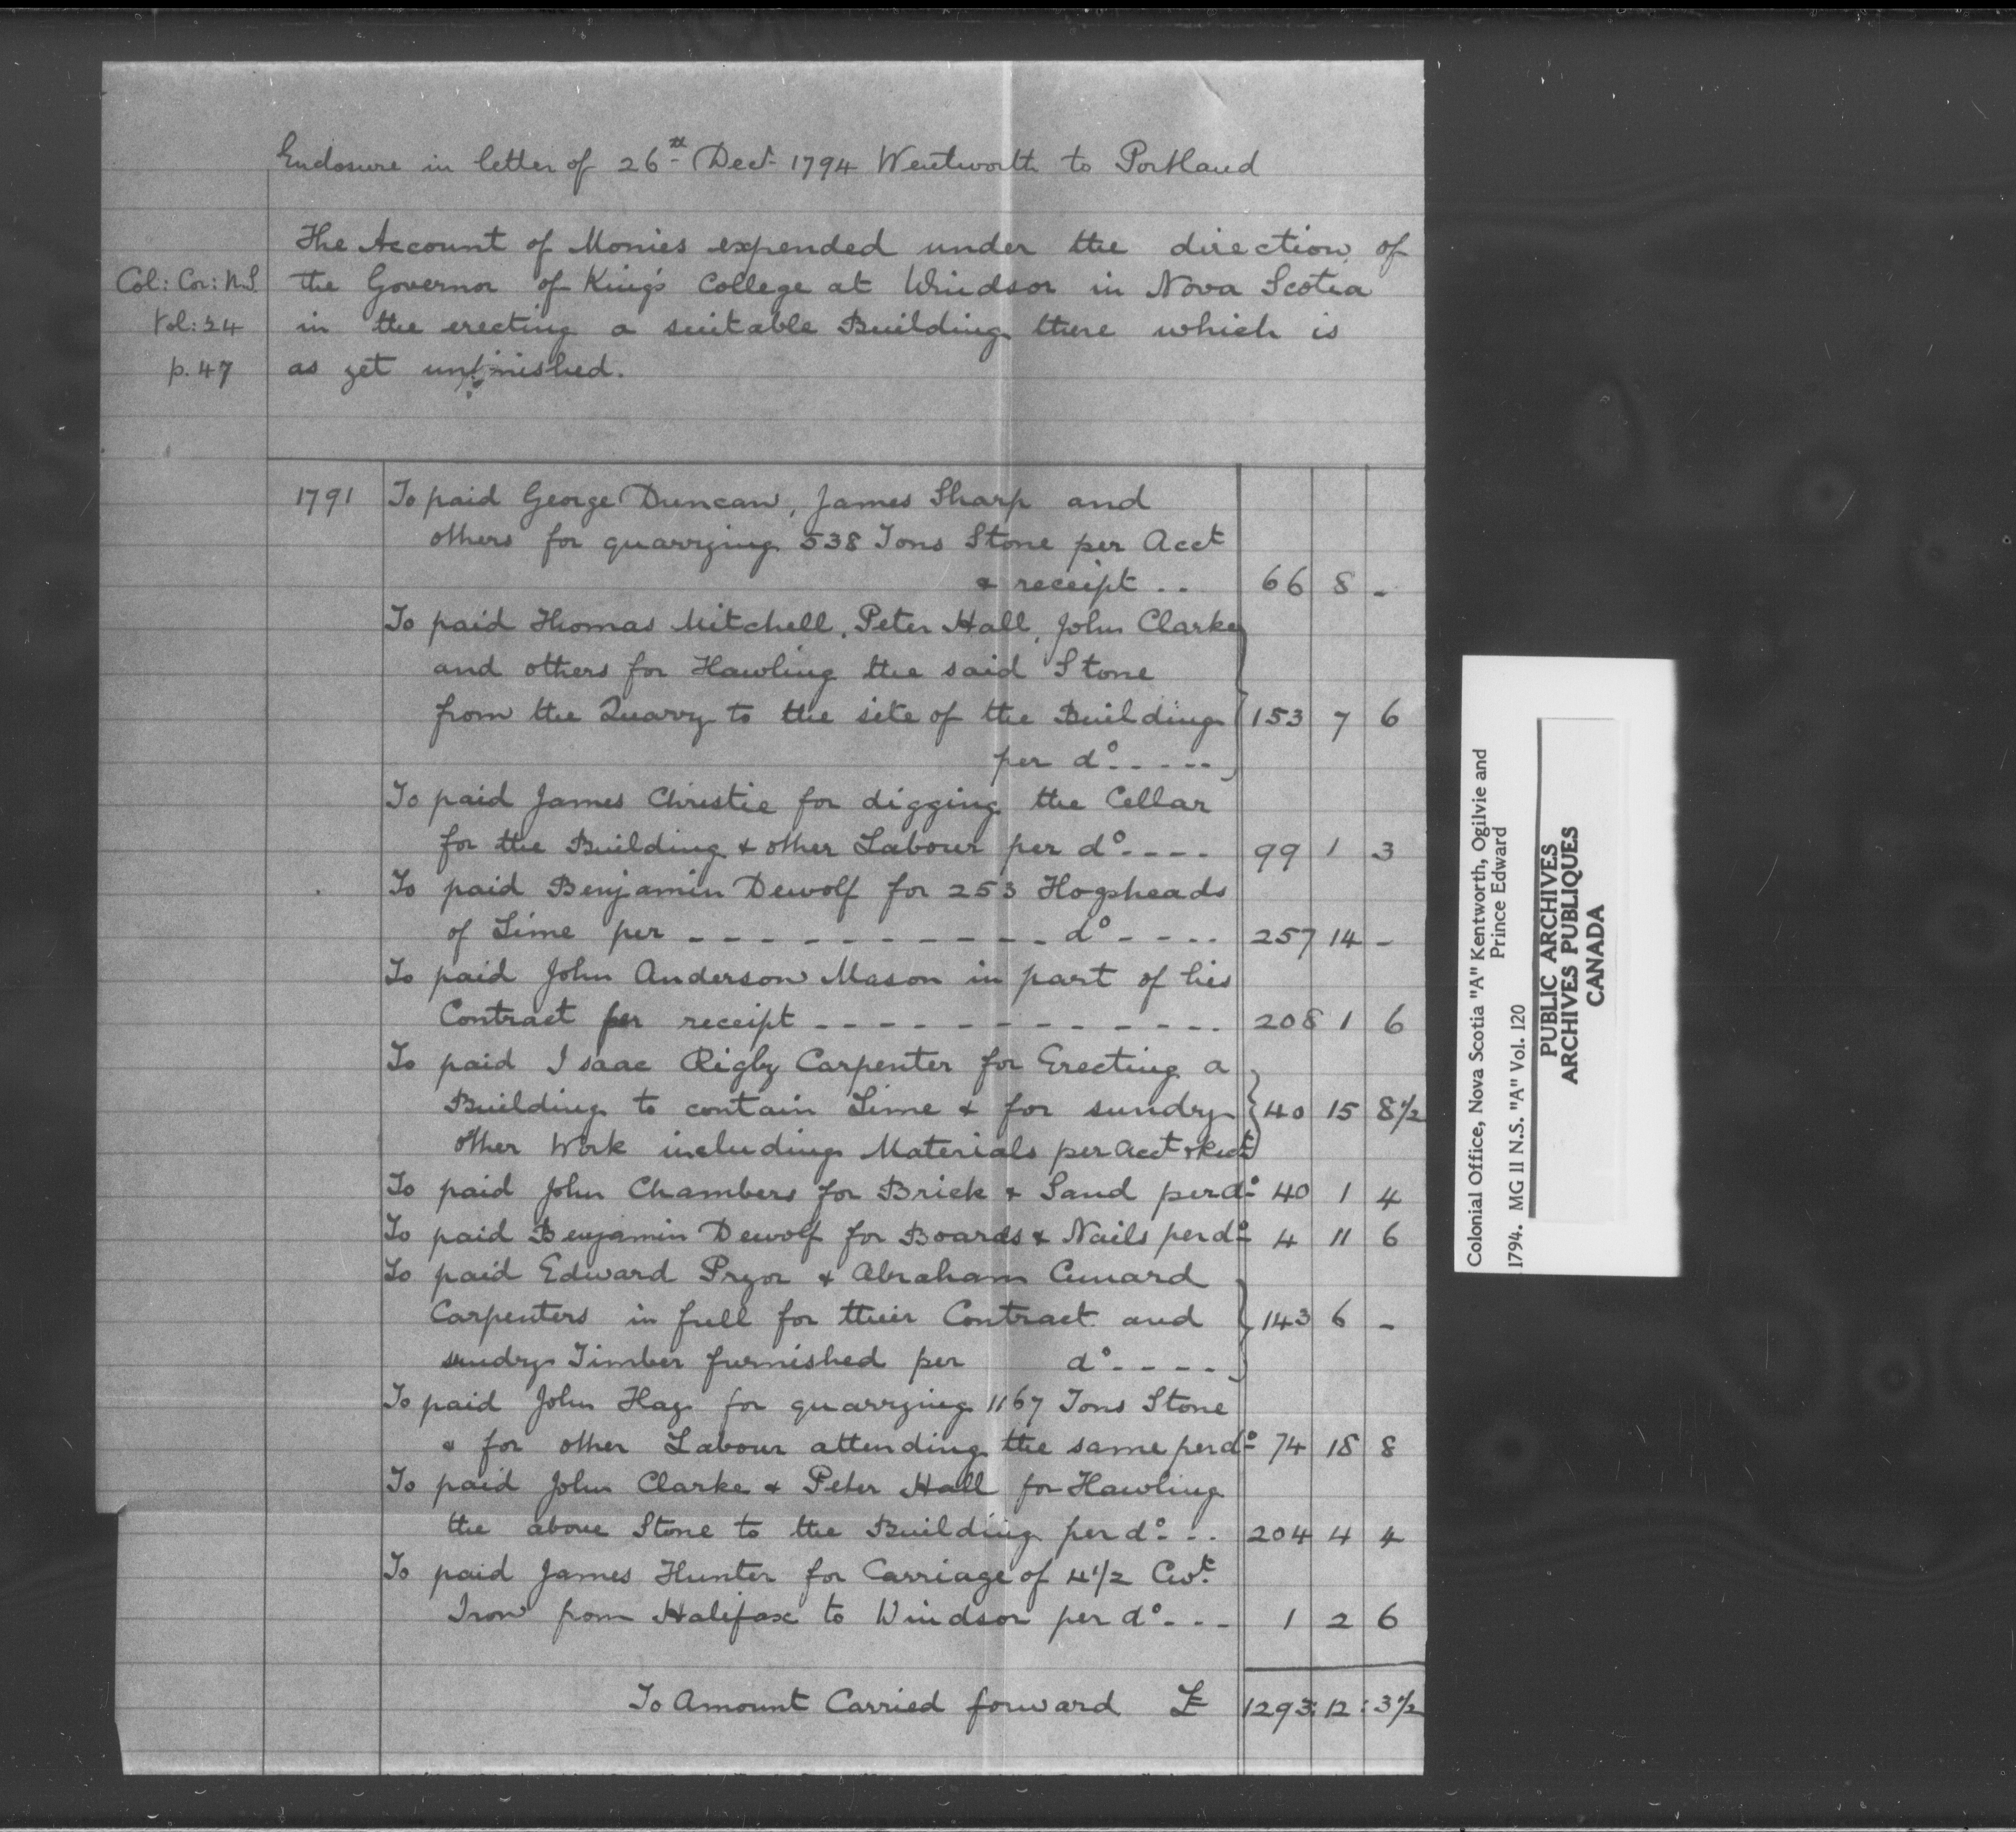 Enclosure in letter of 26th Decr 1794 Wentworth to Portland
The Account of Monies expended under the direction of
Col: Cor: N.S. the Governor of King's College at Windsor in Nova Scotia
Vol: 24 in the erecting a suitable Building there which is
p. 47 as yet unfinished.
1791 To paid George Duncan, James Sharp and
others for quarrying 538 Tons Stone per Acct
& receipt .. 66 8 -
To paid Thomas Mitchell, Peter Hall, John Clarke
and others for Hawling the said Stone
from the Quarry to the site of the Building 153 7 6
per do -----
To paid James Christie for digging the Cellar
for the Building & other Labour per do ---- 99 1 3
To paid Benjamin Dewolf for 253 Hogsheads
of Lime per ----------- do ---- 257 14 -
To paid John Anderson Mason in part of his
Contract per receipt ------------- 208 1 6
To paid Isaac Rigby Carpenter for Erecting a
Building to contain Lime & for sundry 40 15 8½
other Work including Materials per Acct & Rect
To paid John Chambers for Brick & Sand per do 40 1 4
To paid Benjamin Dewolf for Boards & Nails per do 4 11 6
To paid Edward Pryor & Abraham Cunard
Carpenters in full for their Contract and 143 6 -
sundry Timber furnished per do ----
To paid John Hay for quarrying 1167 Tons Stone
& for other Labour attending the same per do 74 18 8
To paid John Clarke & Peter Hall for Hawling
the above Stone to the Building per do -.. 204 4 4
To paid James Hunter for Carriage of 4½ Cwt.
Iron from Halifax to Windsor per do --- 1 2 6
To Amount Carried forward £ 1293: 12: 3½
Colonial Office, Nova Scotia "A" Kentworth, Ogilvie and
Prince Edward
1794. MG 11 N.S. "A" Vol. 120
PUBLIC ARCHIVES
ARCHIVES PUBLIQUES
CANADA